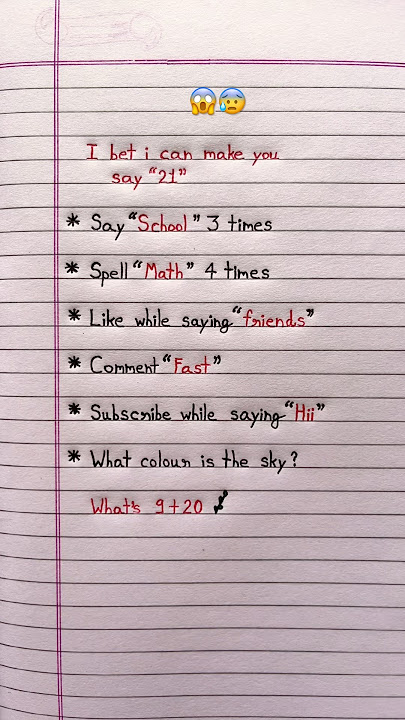 😱😰
I bet i can make you
say "21"
* Say "School" 3 times
* Spell "Math" 4 times
* Like while saying "friends"
* Comment "Fast"
* Subscribe while saying "Hii"
* What colour is the sky?
What's 9+20